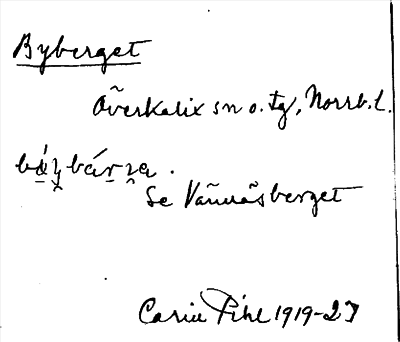 Byberget
Överkalix sn o. tg, Norrb. l.
Se Vännäsberget
Carin Pihl 1919-27